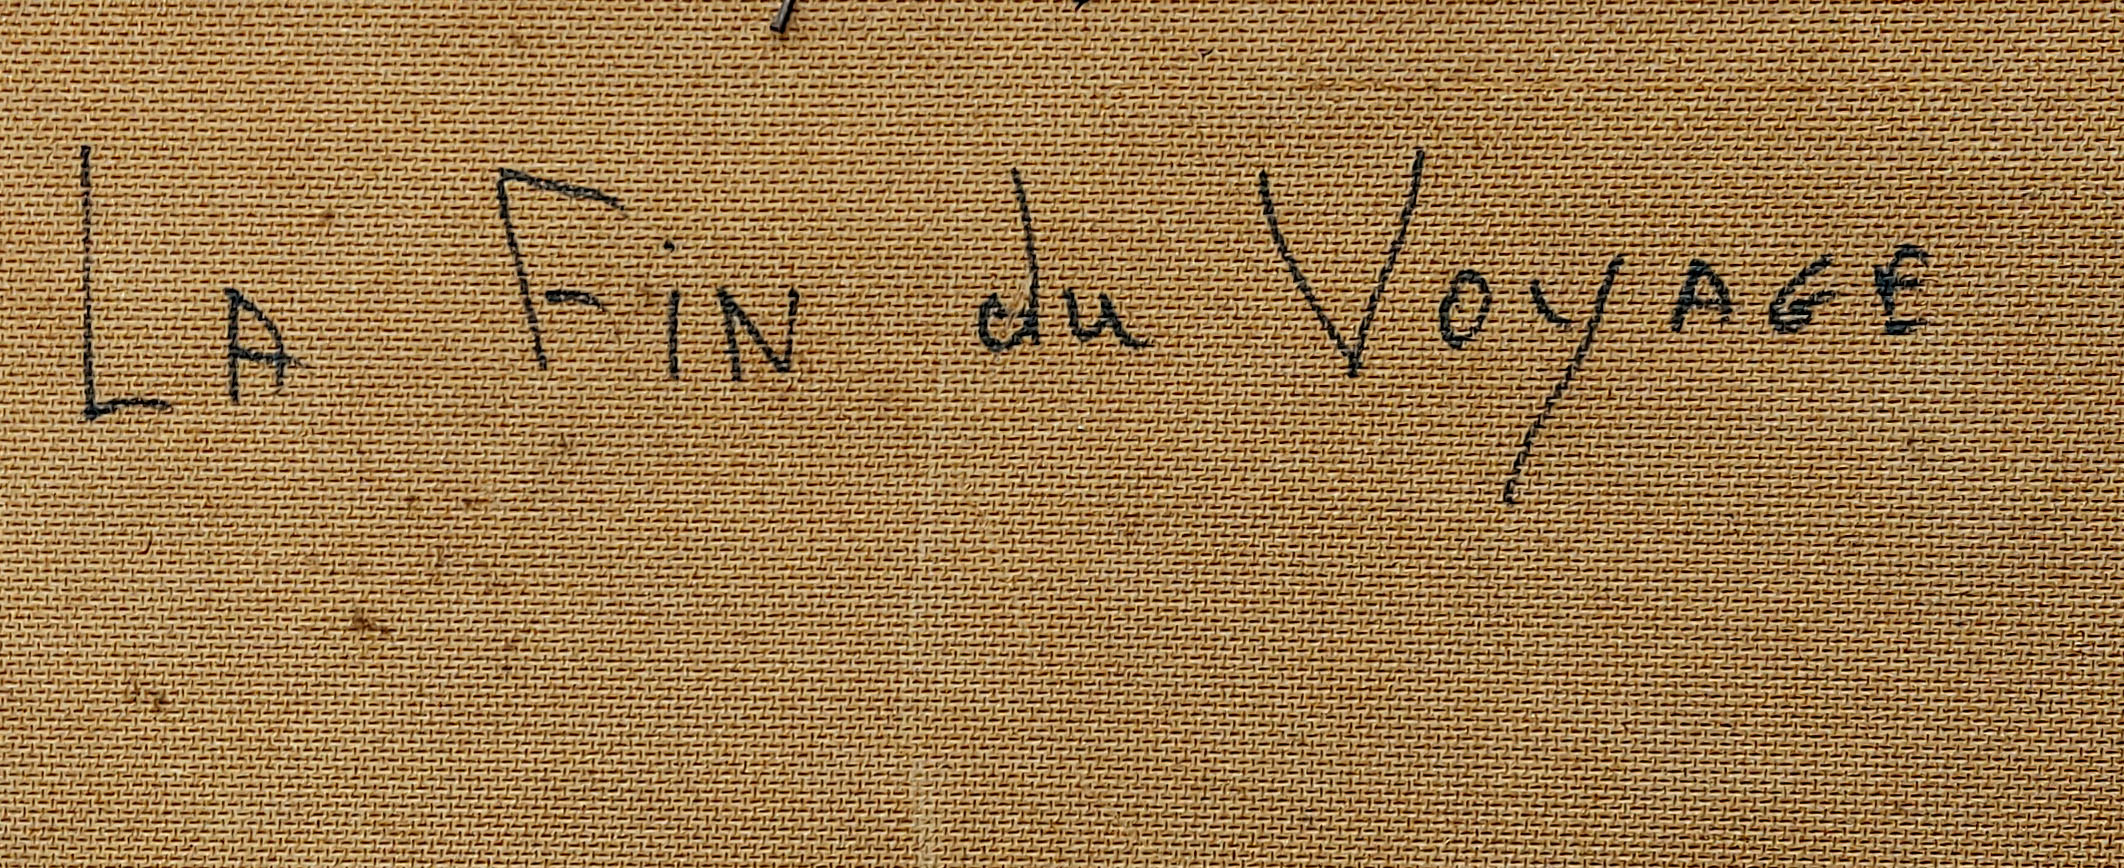 LA FiN du VOYAGE